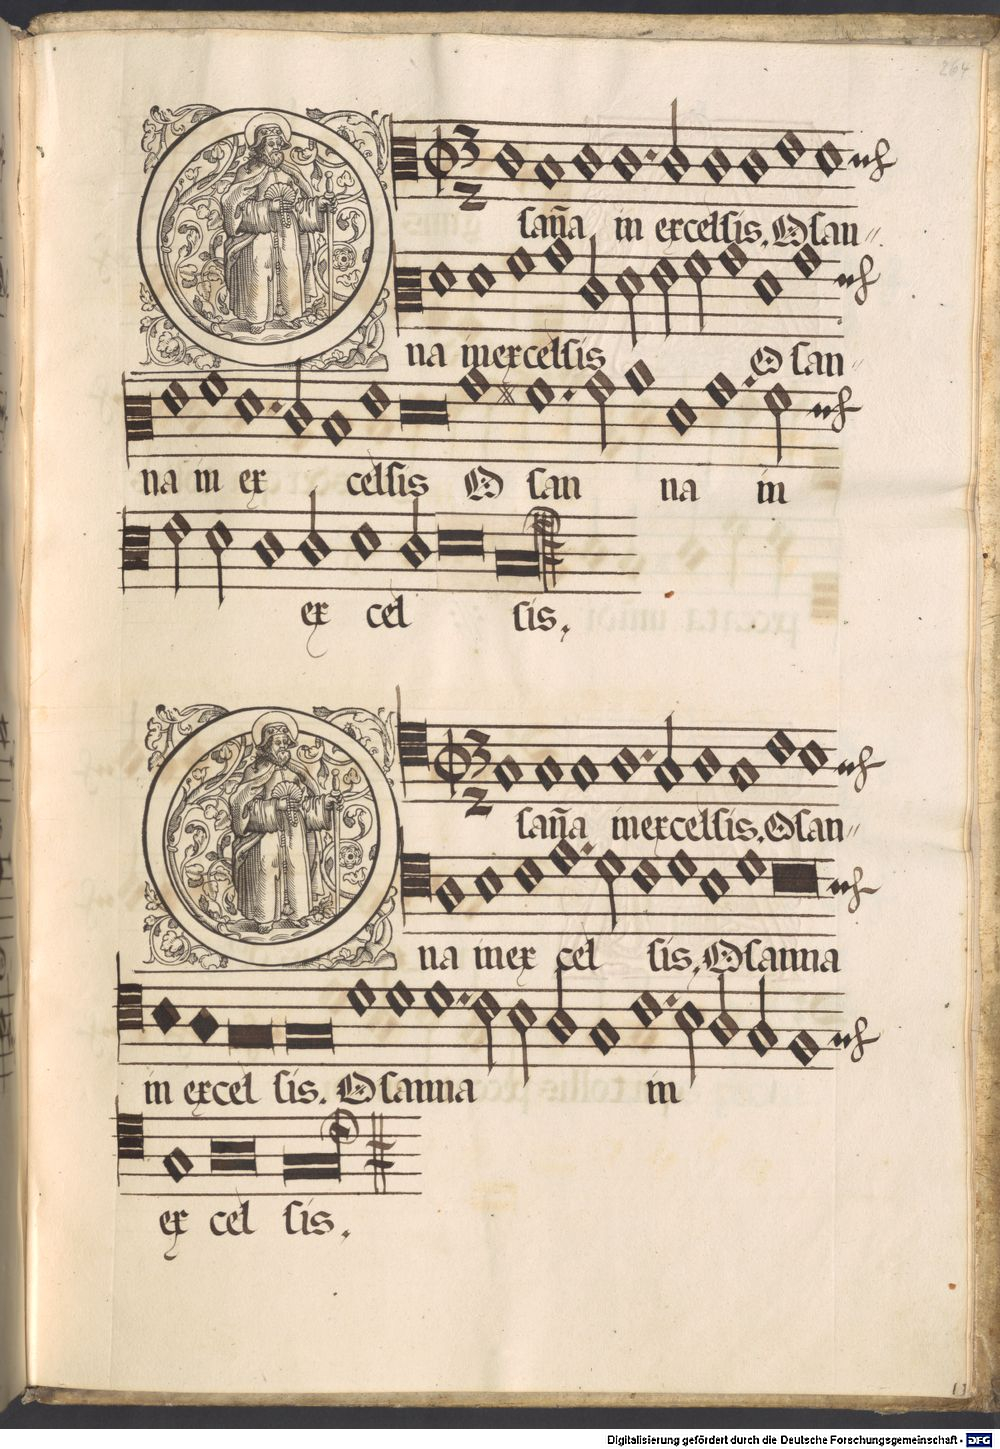 264
saña in excelsis. Osan
na in excelsis O san
na in ex celsis O san na in
ex cel sis.
saña in excelsis. Osan
na in ex cel sis. Osanna
in excel sis. Osanna in
ex cel sis.
13
Digitalisierung gefördert durch die Deutsche Forschungsgemeinschaft - DFG